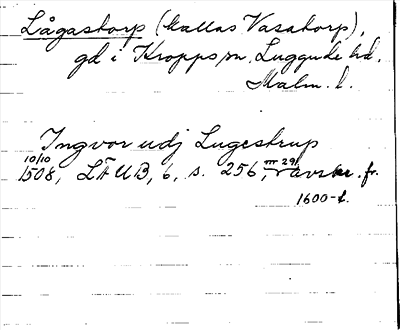 Lågastorp (kallas Vasatorp),
gd i Kropps sn. Luggude hd.
Malm. l.
Ingvor udj Lugestrup
10/10
1508, LÄUB, 6, s. 256, nr 291, avskr. fr.
1600-t.